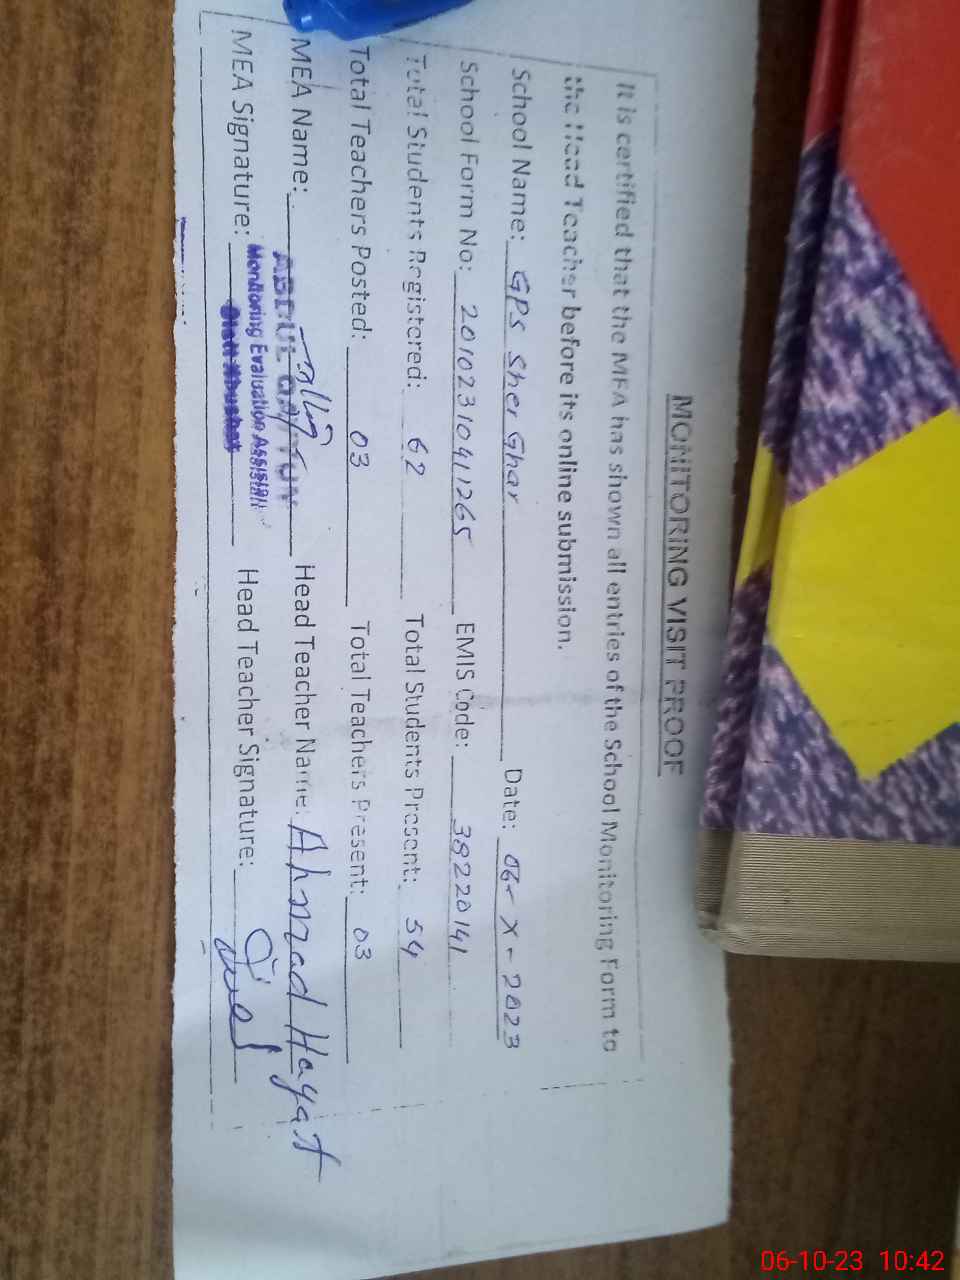 MONITORING VISIT PROOF
It is certified that the MEA has shown all entries of the School Monitoring Form to
the Head Teacher before its online submission.
School Name: GPS Sher Ghar Date: 06-X-2023
School Form No: 20102310411265 EMIS Code: 38220141
Total Students Registered: 62 Total Students Present: 54
Total Teachers Posted: 03 Total Teachers Present: 03
MEA Name: ABDUL Head Teacher Name: Ahmad Hayat
Monitoring Evaluation Assistant
MEA Signature: Head Teacher Signature:
06-10-23 10:42